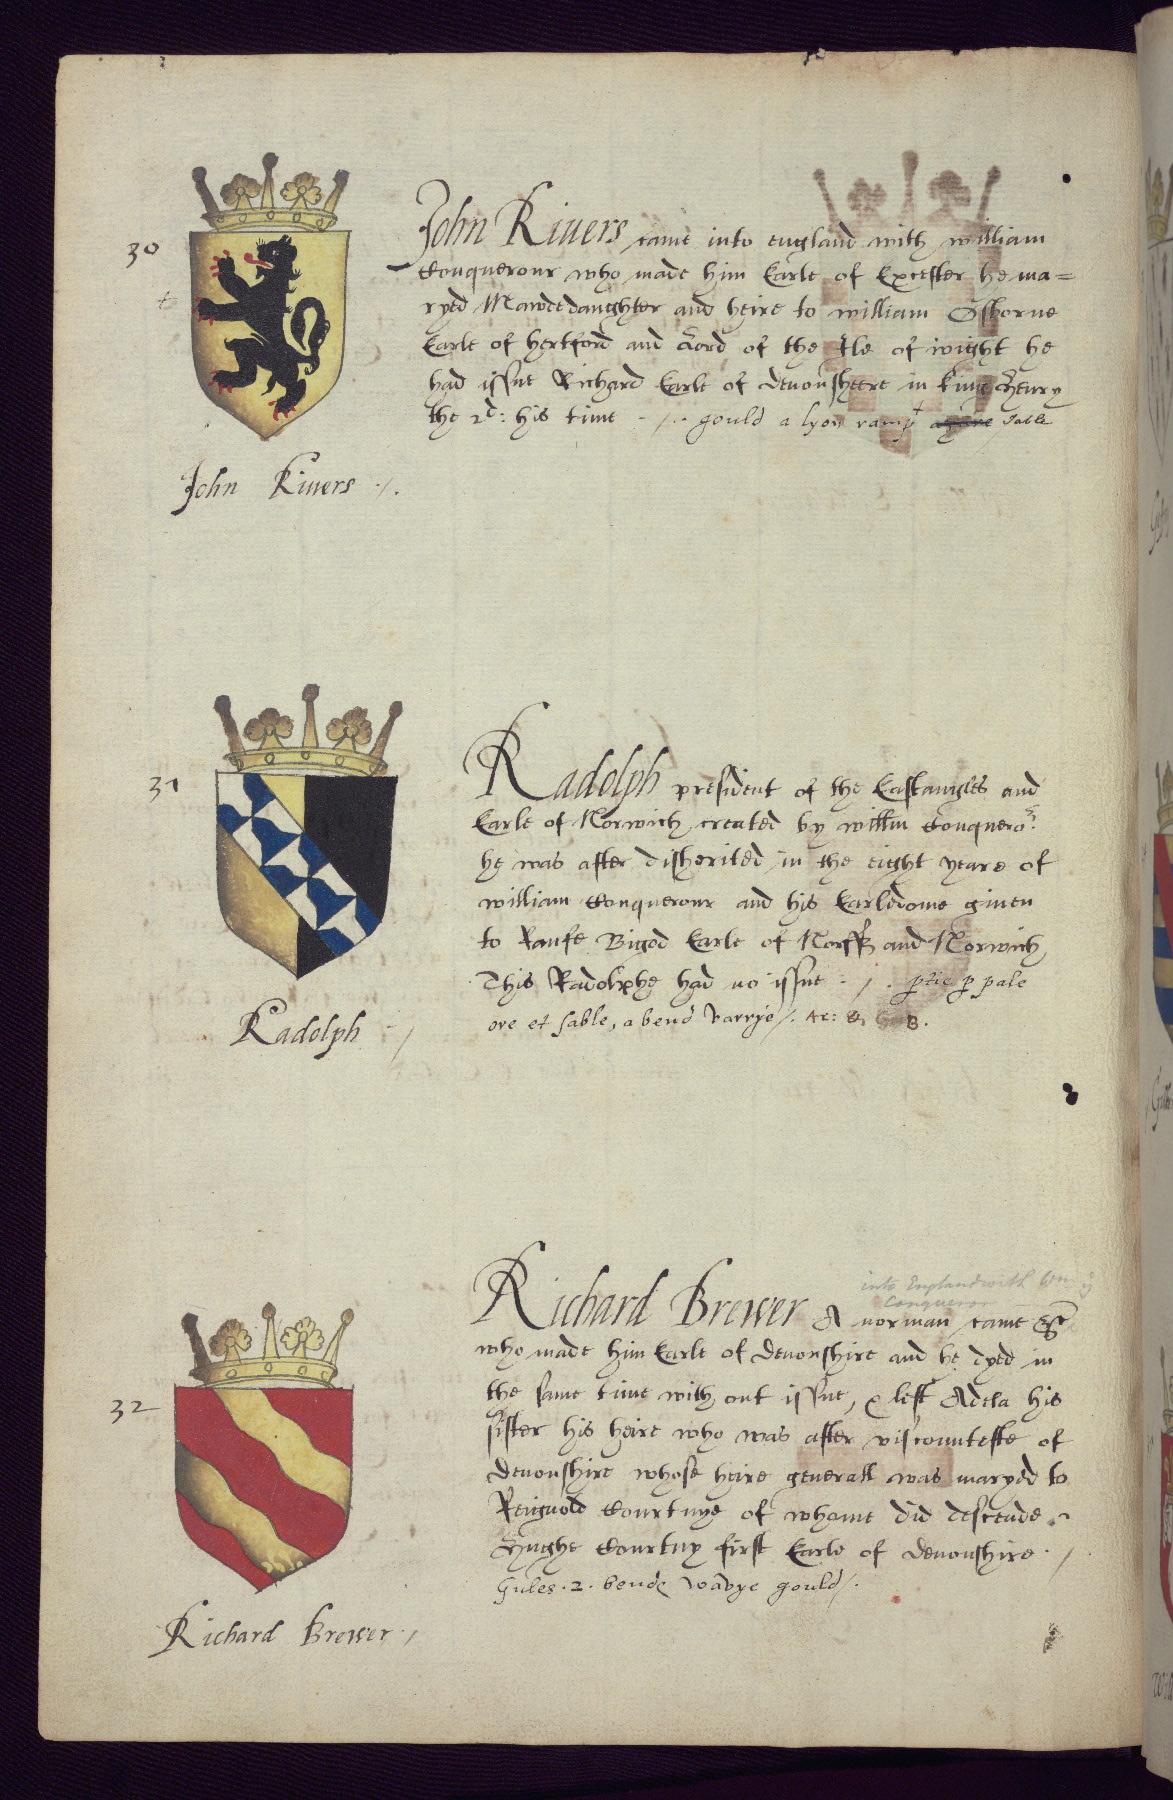 30
John Rivers came into england with william
Conquerour who made him Earle of Excester he ma=
ryed Mawde daughter and heire to william Osborne
Earle of hertford and Lord of the Ile of wight he
had issue Richard Earle of devonsheere in king Henry
the 2d: his time - /. . gould a lyon rampt azure sable
John Rivers ./.
31
Radolph president of the Eastangles and
Earle of Norwich created by willm Conquero:r
he was after disherited in the eight yeare of
william Conquerour and his Earldome given
to Raufe Bigod Earle of Norff and Norwich
This Radolphe had no issue - / . ptie p pale
ore et sable, a bend varrye /. Ar: & B.
Radolph - /
into England with Wm ye
Conqueror
32
Richard Brewer A norman came &c
who made him Earle of devonshire and he dyed in
the same time with out issue, & left Adela his
sister his heire who was after viscountesse of
devonshire whose heire generall was maryed to
Reignold Courtnye of whome did descende
Hughe Courtny first Earle of devonshire . /
Gules . 2 . bende wavye gould /.
Richard Brewer . /